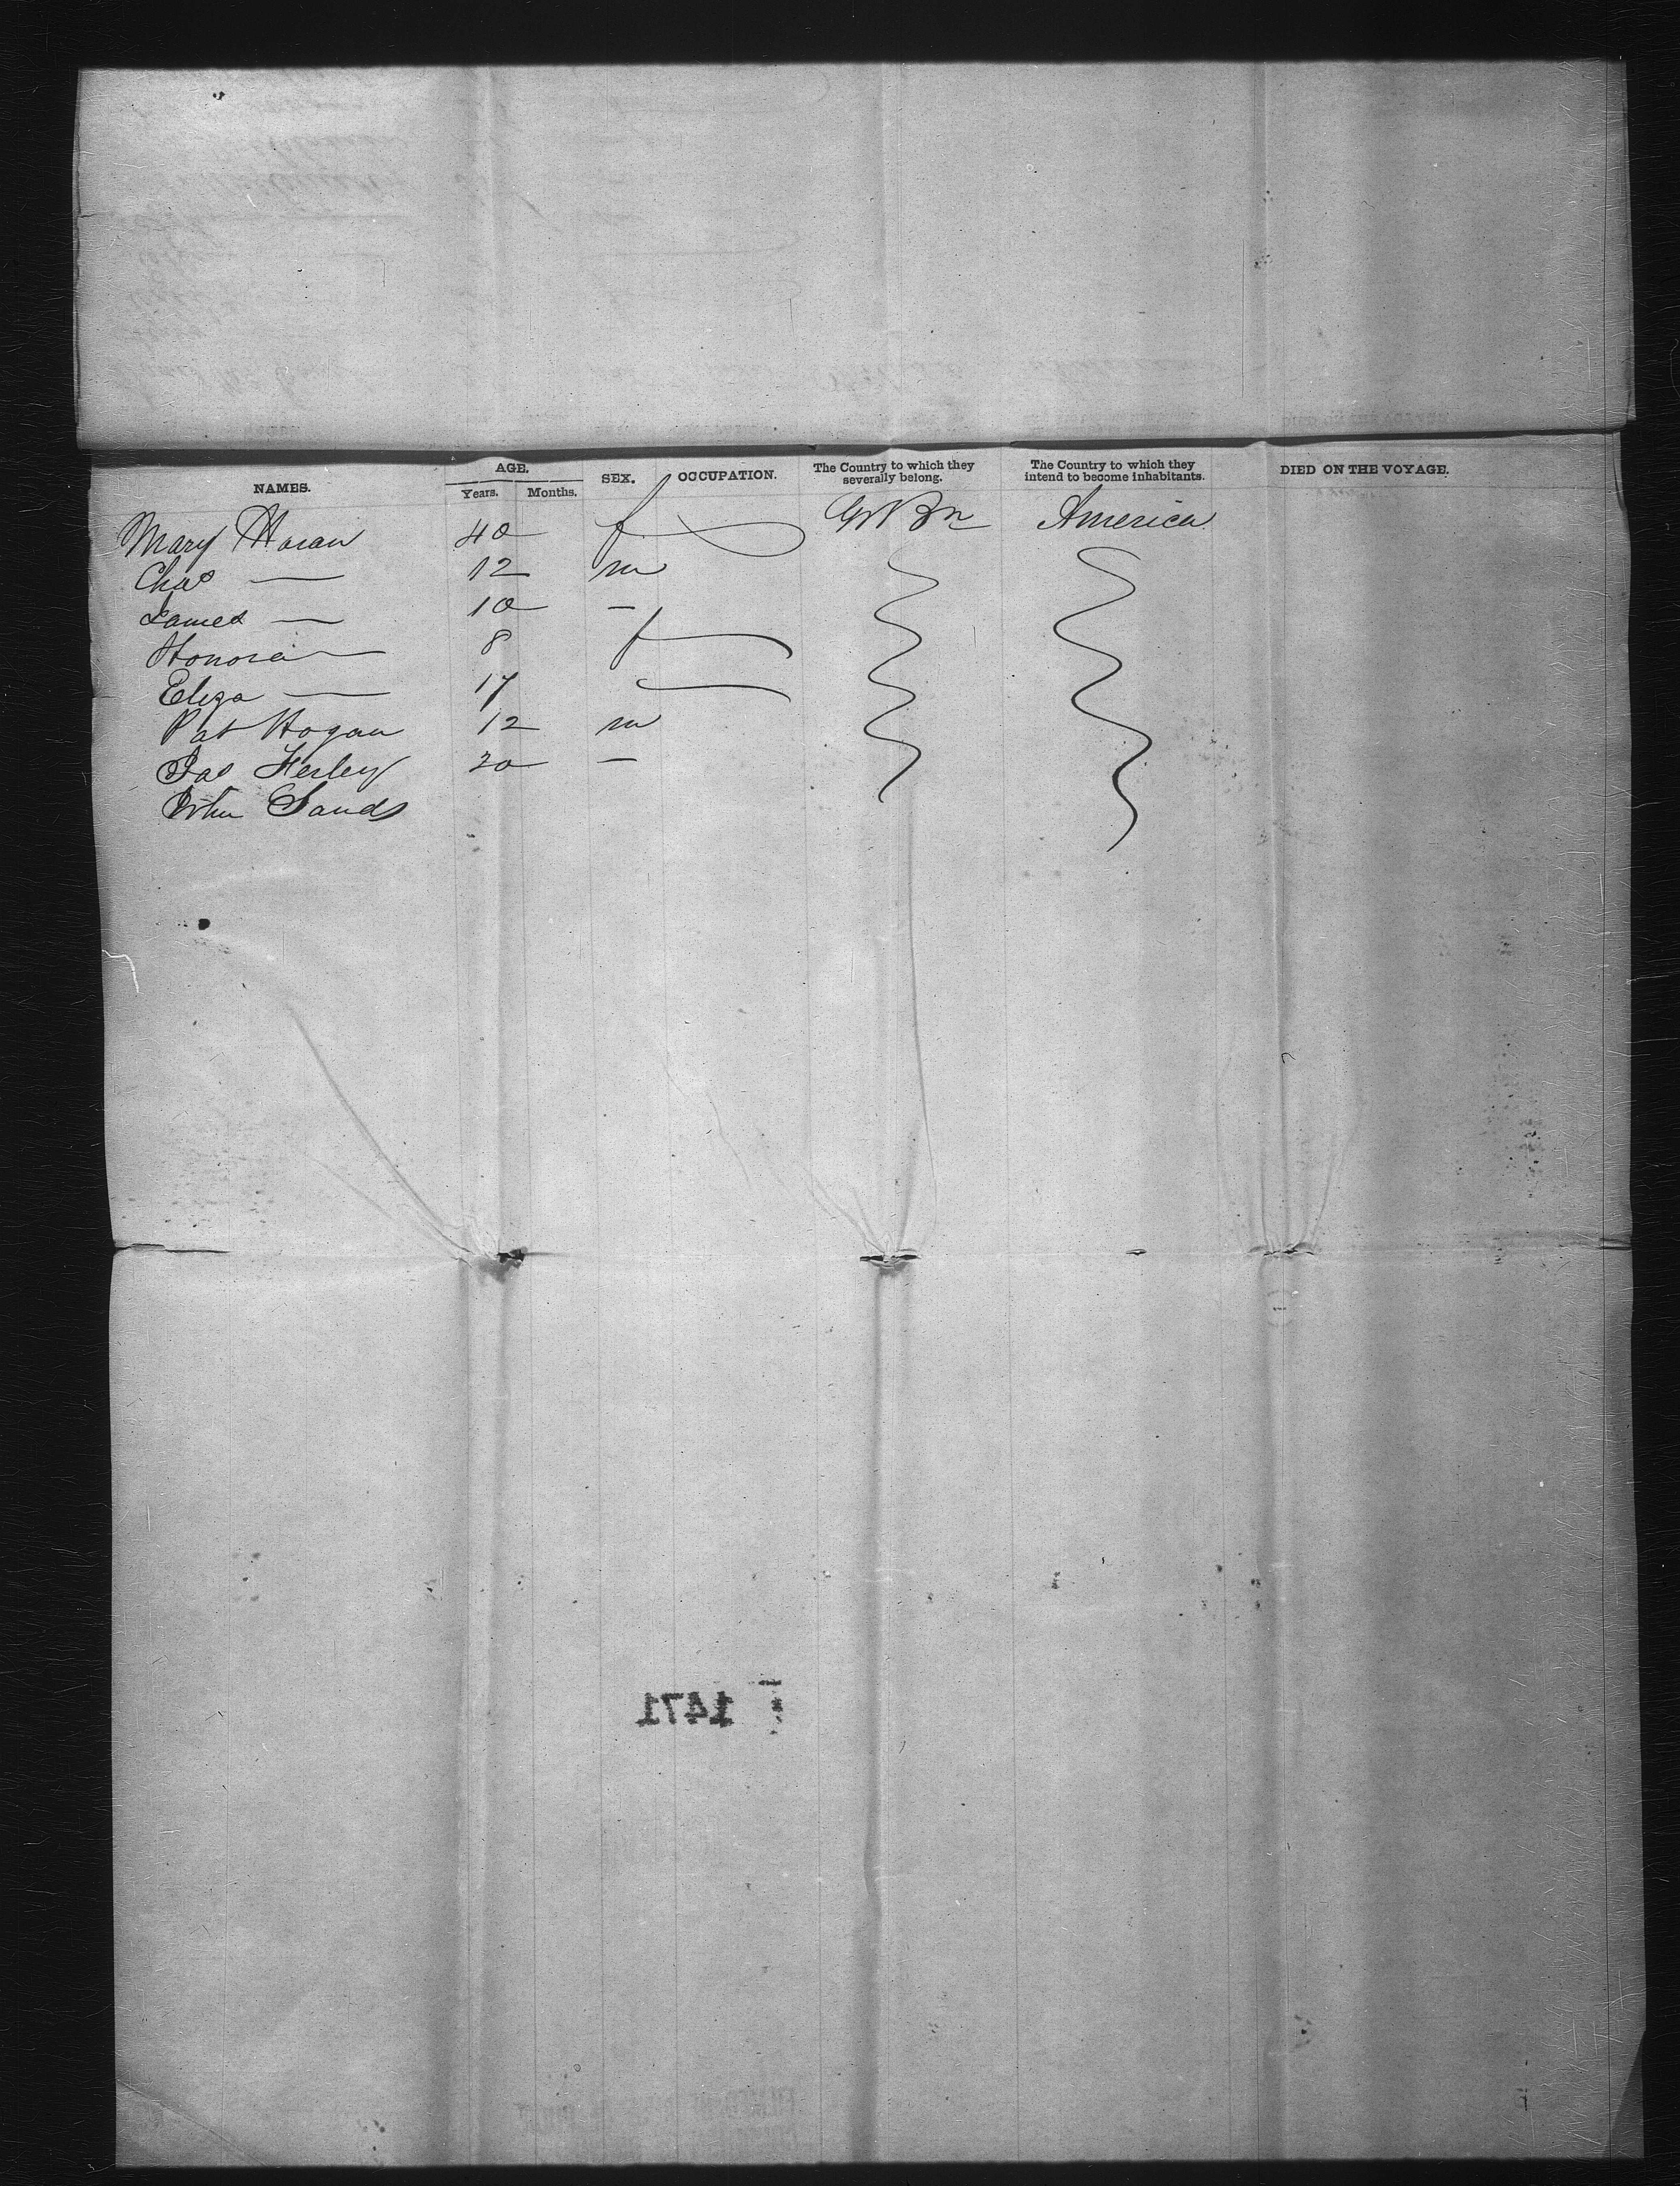 NAMES. AGE. SEX. OCCUPATION. The Country to which they severally belong. The Country to which they intend to become inhabitants. DIED ON THE VOYAGE.
Years. Months.
Mary Horan 40 f Gt Bn America
Chas — 12 m
James — 10 —
Honora — 8 f
Eliza — 17
Pat Hogan 12 m
Jas Herley 20 —
John Sands
1471